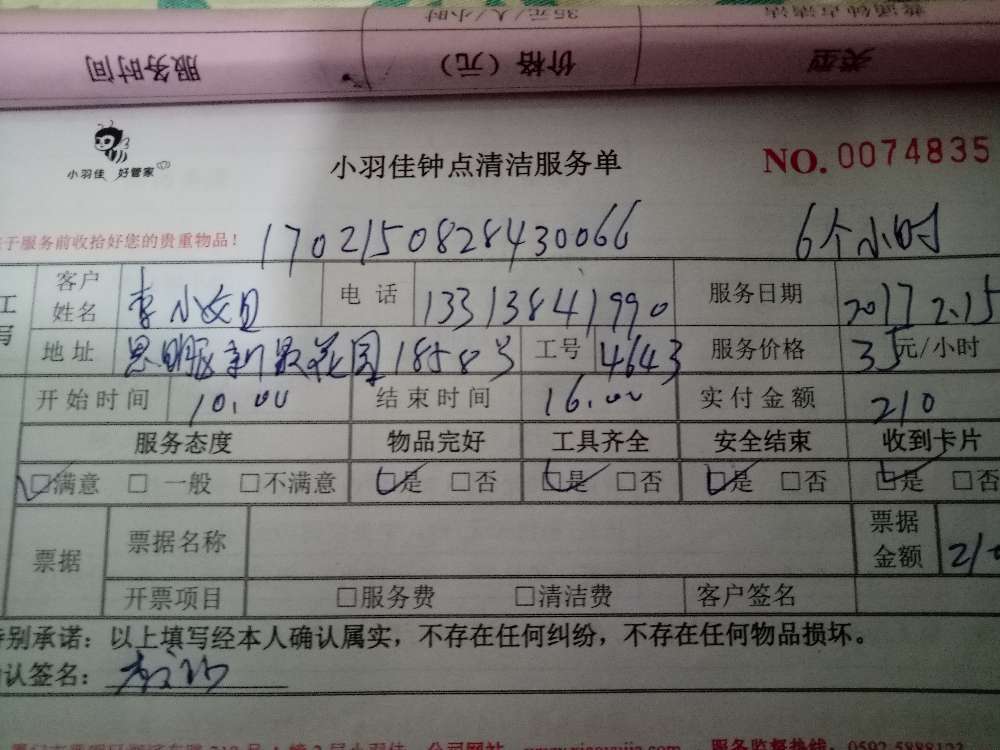 普通钟点清洁 35元/人/小时
类型 价格（元） 服务时间
小羽佳 好管家
小羽佳钟点清洁服务单
NO. 0074835
于服务前收拾好您的贵重物品！
1702150828430066 6个小时
客户姓名 李小姐 电话 13313841990 服务日期 2017 2.15
地址 号 工号 4643 服务价格 35元/小时
开始时间 10.00 结束时间 16.00 实付金额 210
服务态度 物品完好 工具齐全 安全结束 收到卡片
☑满意 □一般 □不满意 ☑是 □否 ☑是 □否 ☑是 □否 ☑是 □否
票据 票据名称 票据金额 210
开票项目 □服务费 □清洁费 客户签名
特别承诺：以上填写经本人确认属实，不存在任何纠纷，不存在任何物品损坏。
确认签名：